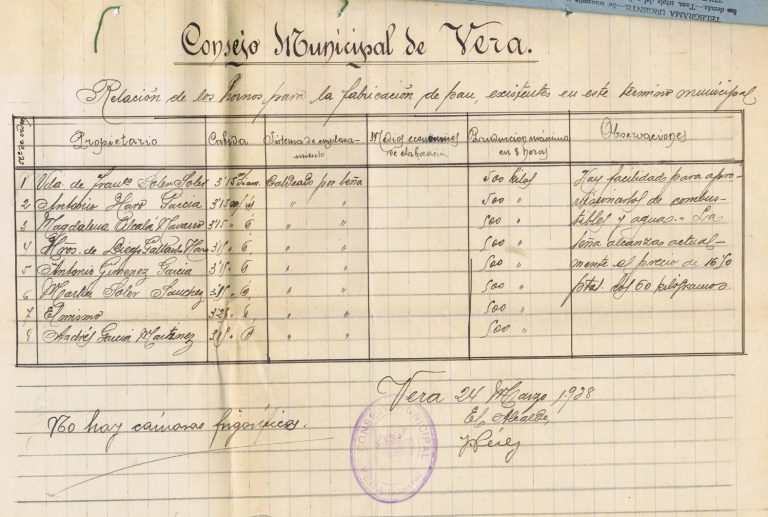 TELEGRAMA URGENTE.
Consejo Municipal de Vera.
Relación de los hornos para la fabricación de pan, existentes en este termino municipal
Nº de orden | Propietario | Cabida | Sistema de emplazamiento | Medios economicos de elaboración | Producción máxima en 8 horas | Observaciones
1 Vda. de Franco Soler Soler 3'15 Diam. Caldeado por leña 500 kilos Hay facilidad para apro-
2 Antonio Haro Garcia 3'15 " " " 500 " visionarlos de combus-
3 Magdalena Alcalá Navarro 3'15 " " " 500 " tibles y agua.= La
4 Hros. de Diego 3'15 " " " 500 " leña alcanza actual-
5 Antonio Gimenez Garcia 3'15 " " " 500 " mente el precio de 16'50
6 Martin Soler Sanchez " " " 500 " ptas. los 60 kilógramos.
7 El mismo 3'25 " " " 500 "
8 Andrés Garcia Martinez " " " 500 "
Vera 24 Marzo 1938
El Alcalde,
No hay cámaras frigoríficas.
CONSEJO MUNICIPAL